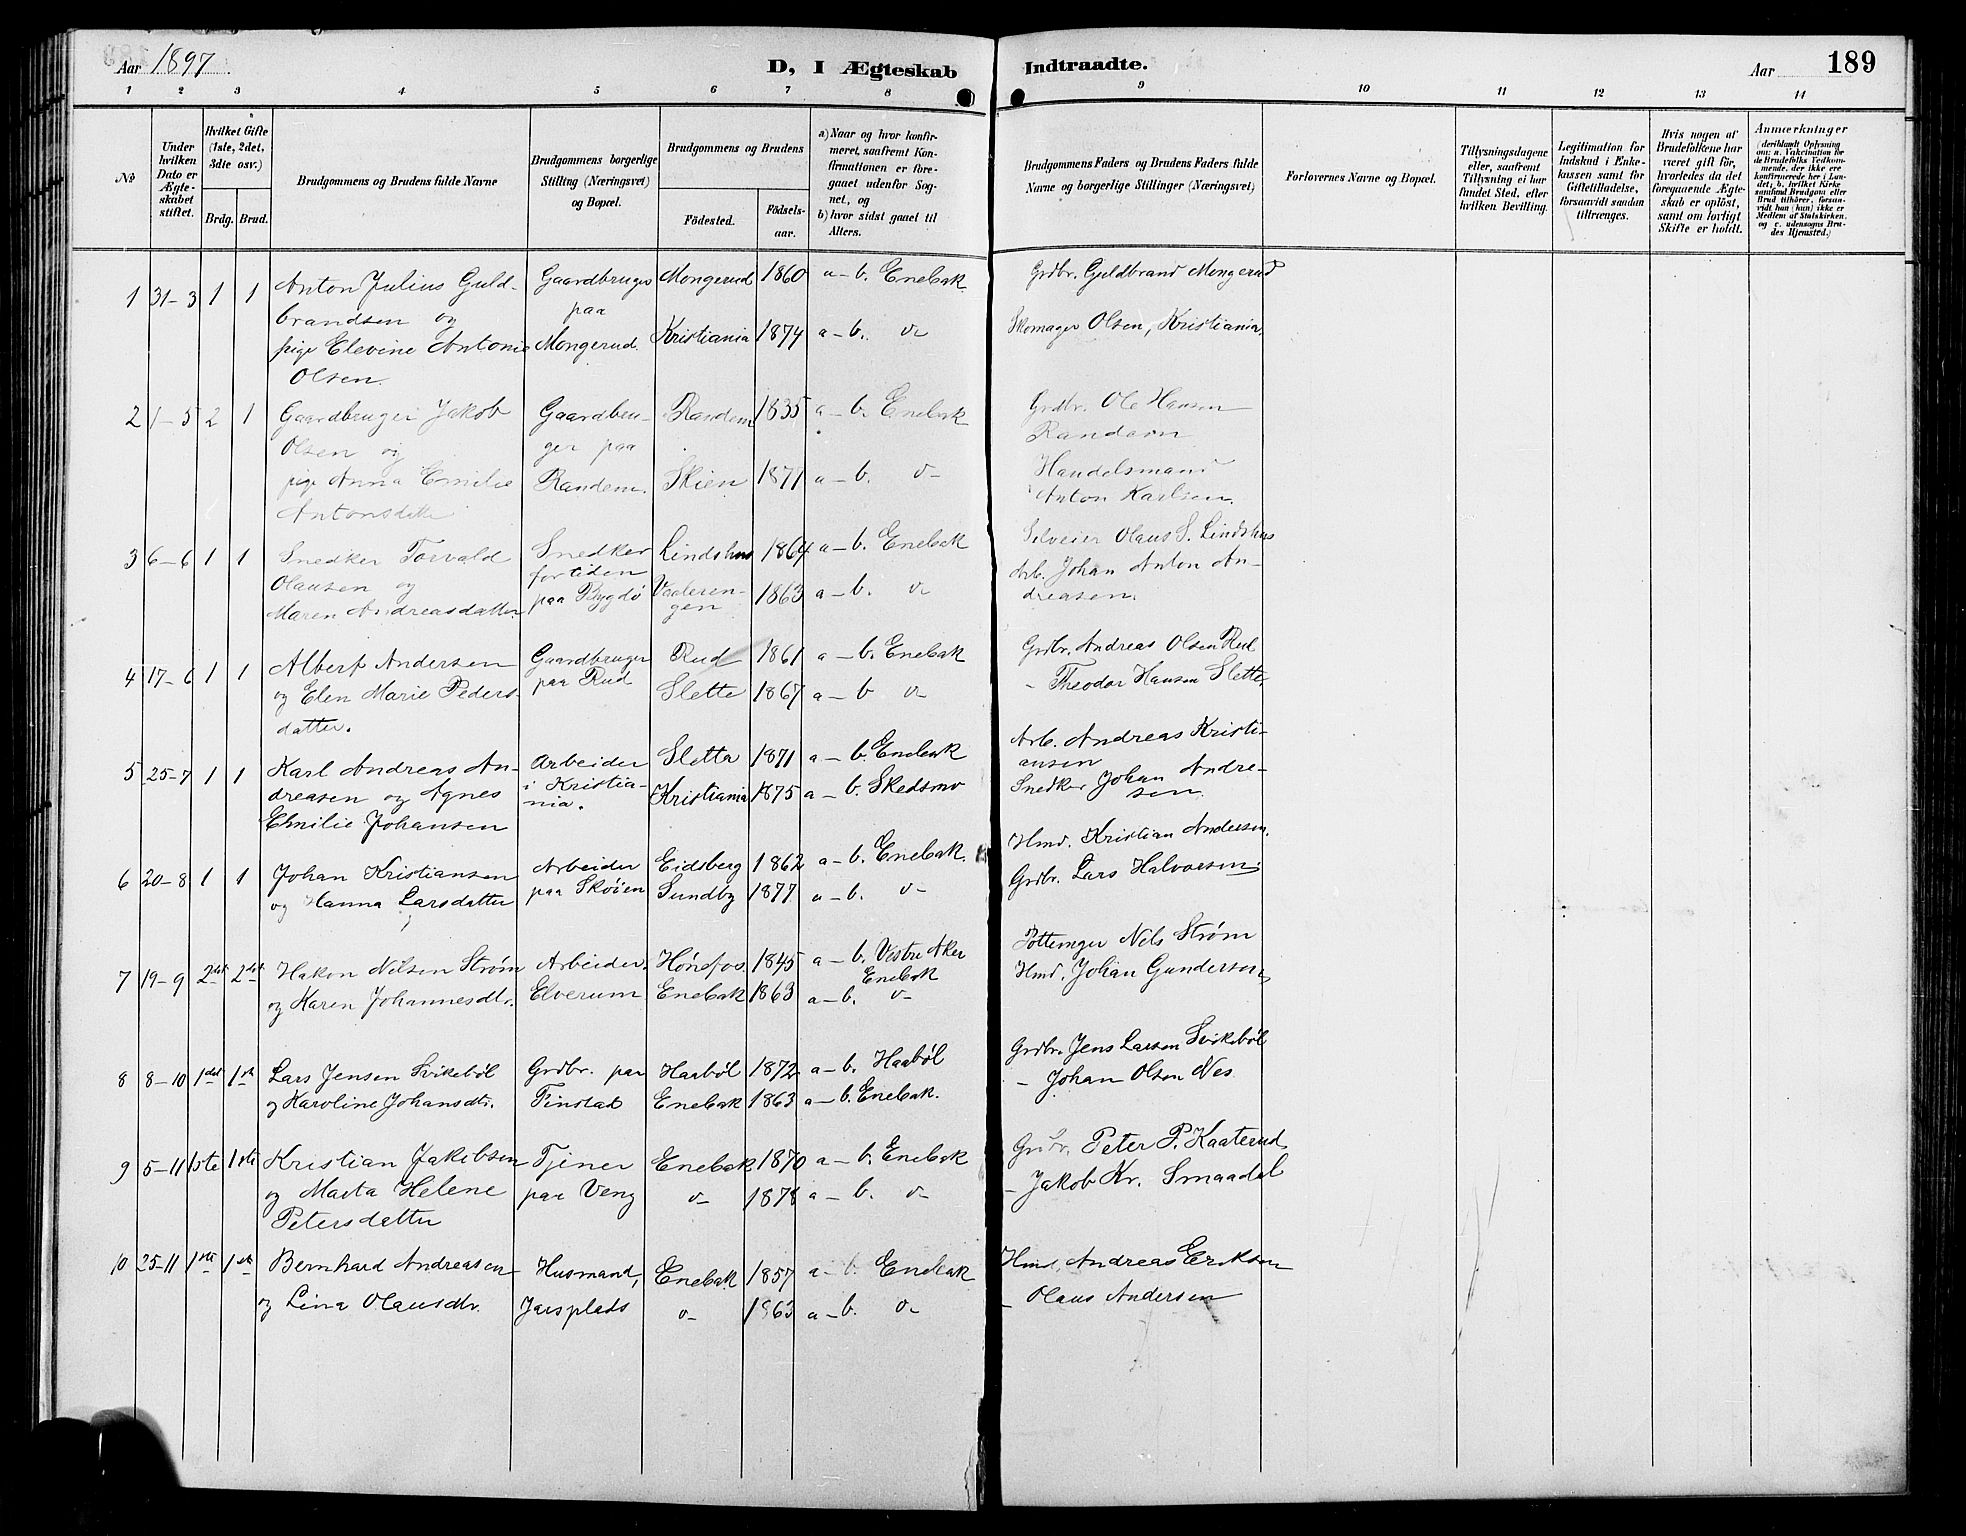 Aar 1897
D, I Ægteskab Indtraadte.
Aar
189
1 2 3 4 5 6 7 8 9 10 11 12 13 14
No
Under hvilken Dato er Ægteskabet stiftet.
Hvilket Gifte (1ste, 2det, 3dte osv.)
Brdg. Brud.
Brudgommens og Brudens fulde Navne
Brudgommens borgerlige Stilling (Næringsvei) og Bopæl.
Brudgommens og Brudens
Födested. Födsels-aar.
a) Naar og hvor konfirmeret, saafremt Konfirmationen er foregaaet udenfor Sognet, og
b) hvor sidst gaaet til Alters.
Brudgommens Faders og Brudens Faders fulde Navne og borgerlige Stillinger (Næringsvei)
Forlovernes Navne og Bopæl.
Tillysningsdagene eller, saafremt Tillysning ei har fundet Sted, efter hvilken Bevilling.
Legitimation for Indskud i Enkekassen samt for Giftetilladelse, forsaavidt saadan tiltrænges.
Hvis nogen af Brudefolkene har været gift för, hvorledes da det foregaaende Ægteskab er oplöst, samt om lovligt Skifte er holdt.
Anmerkninger (deriblandt Oplysning om: a. Vakcination for de Brudefolks Vedkommende, der ikke ere konfirmerede her i Landet; b. hvilket Kirkesamfund Brudgom eller Brud tilhörer, forsaavidt han (hun) ikke er Medlem af Statskirken, og c. udensogns Brudes Hjemsted.)
1 31-3 1 1 Anton Julius Guldbrandsen og pige Elevine Antonie Olsen. Gaardbruger paa Mongerud. Mongerud 1860 a-b. Enebak. Grdbr. Guldbrand Mongerud
Kristiania 1874 a-b. v- Skomager Olsen, Kristiania.
2 1-5 2 1 Gaardbruger Jakob Olsen og pige Anna Emilie Antonsdatter Gaardbruger paa Randem. Randem 1835 a-b. Enebak Grdbr. Ole Hansen Randem
Skien 1871 a-b. v- Handelsmand Anton Karlsen.
3 6-6 1 1 Snedker Torvald Olausen og Maren Andreasdatter. Snedker fortiden paa Bygdö Lindshus 1864 a-b. Enebak Selveier Olaus S. Lindshus
Vaalerengen 1863 a-b. v- Arb. Johan Anton Andreasen.
4 17-6 1 1 Albert Andersen og Elen Marie Pedersdatter. Gaardbruger paa Rud Rud 1861 a-b. Enebak Grdbr. Andreas Olsen Rud
Slette 1867 a-b v- - Theodor Hansen Slette.
5 25-7 1 1 Karl Andreas Andreasen og Agnes Emilie Johansen Arbeider i Kristiania. Sletta 1871 a-b. Enebak Arb. Andreas Kristiansen
Kristiania 1875 a-b. Skedsmo Snedker Johan Andresen
6 20-8 1 1 Johan Kristiansen og Hanna Larsdatter Arbeider paa Skøien Eidsberg 1862 a-b. Enebak. Hmd. Kristian Andersen.
Sundby 1877 a-b. v- Grdbr. Lars Halvorsen
7 19-9 2det 2det Hakon Nilsen Strøm og Karen Johannesdtr. Arbeider. Elverum Hønefos 1845 a-b. Vestre Aker Enebak Pottemager Nils Strøm
Enebak 1863 a-b. v- Hmd. Johan Gundersen
8 8-10 1det 1st Lars Jensen Svikebøl og Karoline Johansdtr. Grdbr. paa Tinstad Haabøl 1872 a-b. Haabøl Grdbr. Jens Larsen Svikebøl
Enebak 1863 a-b. Enebak. - Johan Olsen Nes
9 5-11 1ste 1ste Kristian Jakobsen og Marta Helene Petersdatter Tjener paa Veng Enebak 1870 a-b. Enebak Grdbr. Peter P. Kaaterud
v- 1878 a-b. v- - Jakob Kr. Smaadal
10 25-11 1ste 1ste Bernhard Andreasen og Lina Olausdtr. Husmand, Jarsplads Enebak 1857 a-b. Enebak Hmd. Andreas Eriksen
v- 1863 a-b. v- - Olaus Andersen